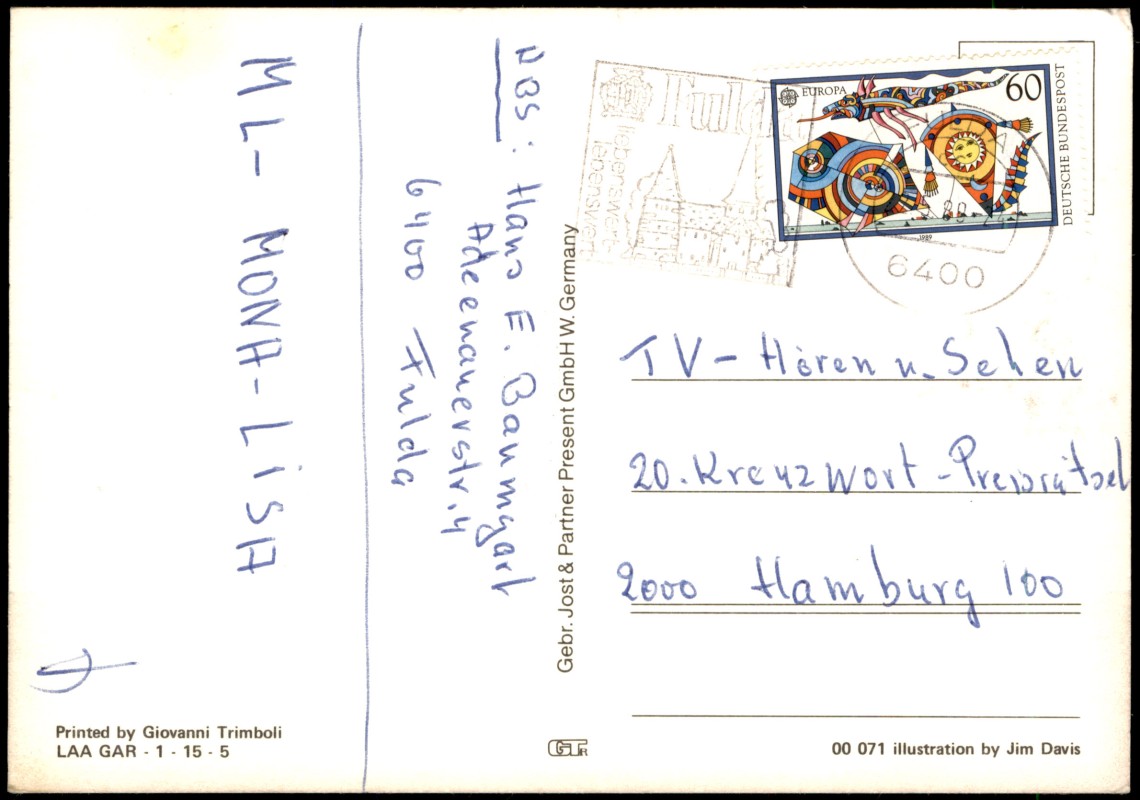 ML- MONA-LiSA
ABS: Hans E. Baumgart
Adeenauerstr. 4
6400 Fulda
Printed by Giovanni Trimboli
LAA GAR - 1 - 15 - 5
Gebr. Jost & Partner Present GmbH W. Germany
Fulda
liebenswert
lebenswert
EUROPA
60
DEUTSCHE BUNDESPOST
1989
6400
TV- Hören u. Sehen
20. Kreuzwort-Preisrätsel
2000 Hamburg 100
GT
00 071 illustration by Jim Davis